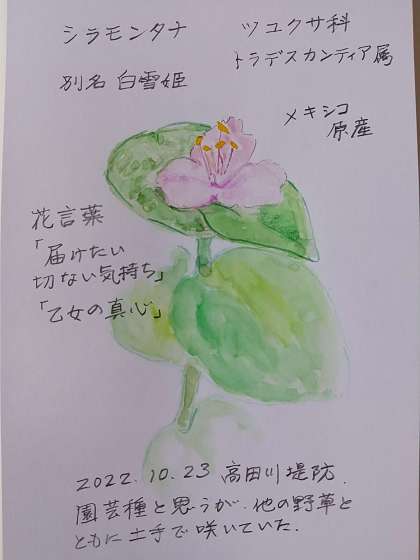 シラモンタナ
ツユクサ科
トラデスカンティア属
別名 白雪姫
メキシコ
原産
花言葉
「届けたい
切ない気持ち」
「乙女の真心」
2022.10.23 高田川堤防.
園芸種と思うが、他の野草と
ともに土手で咲いていた.